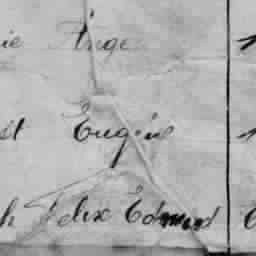 ie Ange 1
st Eugène 1
h Félix Edmond